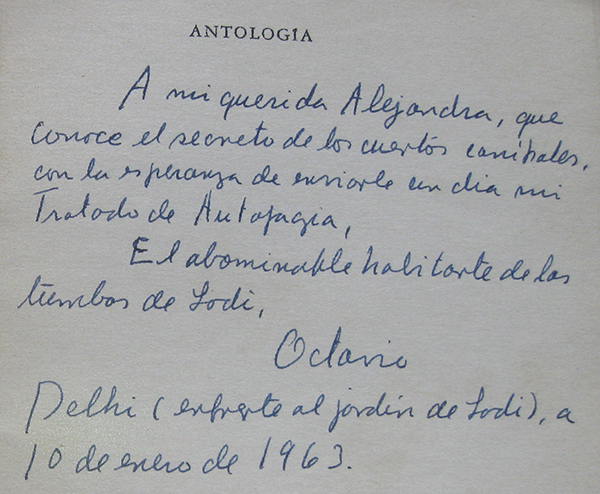 ANTOLOGÍA
A mi querida Alejandra, que
conoce el secreto de los cuentos caníbales,
con la esperanza de enviarle un día mi
Tratado de Autofagia,
El abominable habitante de las
tumbas de Lodi,
Octavio
Delhi (enfrente al jardín de Lodi), a
10 de enero de 1963.